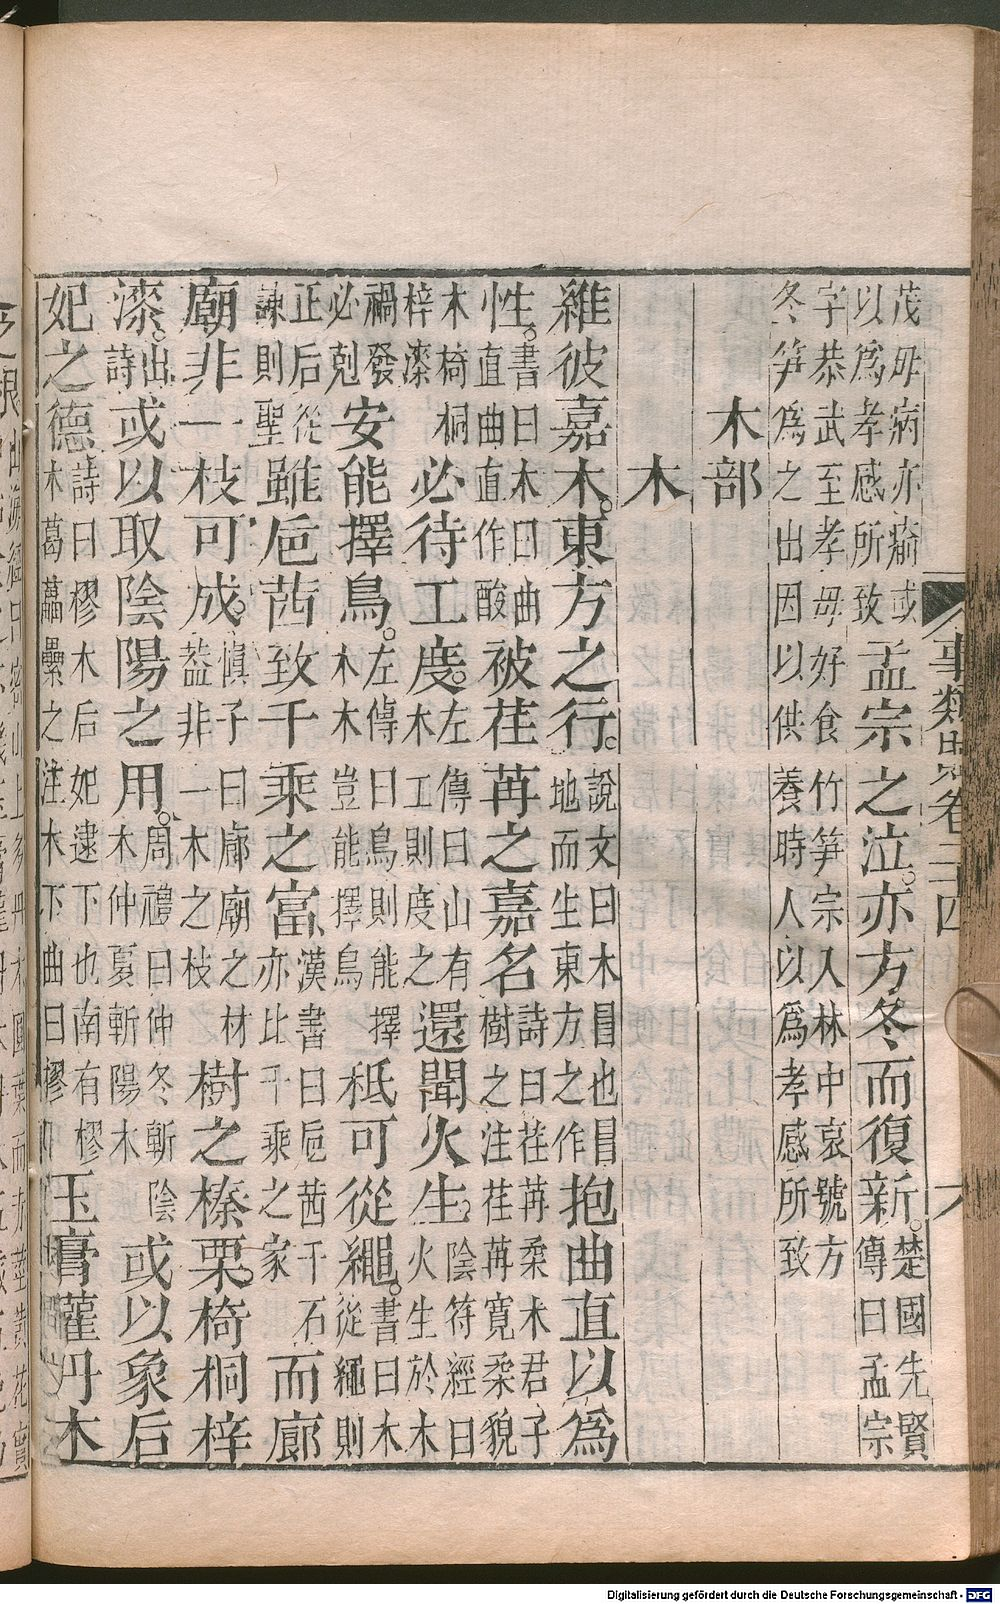 事類賦卷二十四
茂毋病亦瘉或以爲孝感所致孟宗之泣。亦方冬而復新。楚國先賢傳曰孟宗
字恭武至孝毋好食竹笋宗入林中哀號方冬笋爲之出因以供養時人以爲孝感所致
木部
木
維彼嘉木。東方之行。說文曰木冒也冒地而生東方之作抱曲直以爲
性。書曰木曰曲直曲直作酸被荏苒之嘉名詩曰荏苒柔木君子樹之注荏苒寬柔貌
木椅桐梓漆必待工度。左傳曰山有木工則度之還聞火生。陰符經曰火生於木
禍發必剋安能擇鳥。左傳曰鳥則能擇木木豈能擇鳥秪可從繩。書曰木從繩則
正后從諫則聖雖巵茜致千乘之富漢書曰巵茜千石亦比千乘之家而廊
廟非一枝可成。慎子曰廊廟之材蓋非一木之枝樹之榛栗。椅桐梓
漆。出詩或以取陰陽之用。周禮曰仲冬斬陰木仲夏斬陽木或以象后
妃之德詩曰樛木后妃逮下也南有樛木葛藟纍之注木下曲曰樛玉膏灌丹木
Digitalisierung gefördert durch die Deutsche Forschungsgemeinschaft - DFG